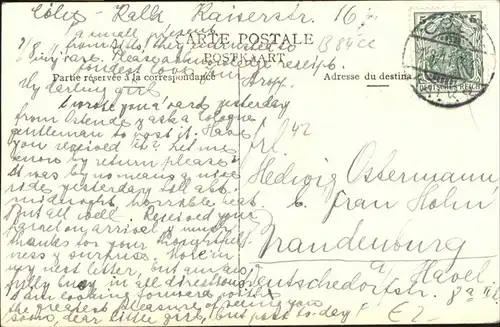 Cöln-Kalk Kaiserstr. 16
a small present
CARTE POSTALE
B 84cc
POSTKAART
Partie réservée à la correspondance
Adresse du destina
DEUTSCHES REICH
My darling girl
I wrote your card yesterday
from Ostende & ask a Cologne
gentleman to post it. Have
you received it? let me
know by return please?
It was by no means a nice
ride yesterday till abt.
midnight, horrible heat.
But all well. Received your
on arrival & many
thanks for your thoughtful-
ness & surprise. More in
my next letter, but am aw-
fully busy in all directions
I am looking forward with
the greatest pleasure of seeing you
soon, dear little girl, but not to day!
Frl.
Hedwig Ostermann
b. Frau Hohn
Brandenburg
a/ Havel
Deutschedorfstr. 8a III